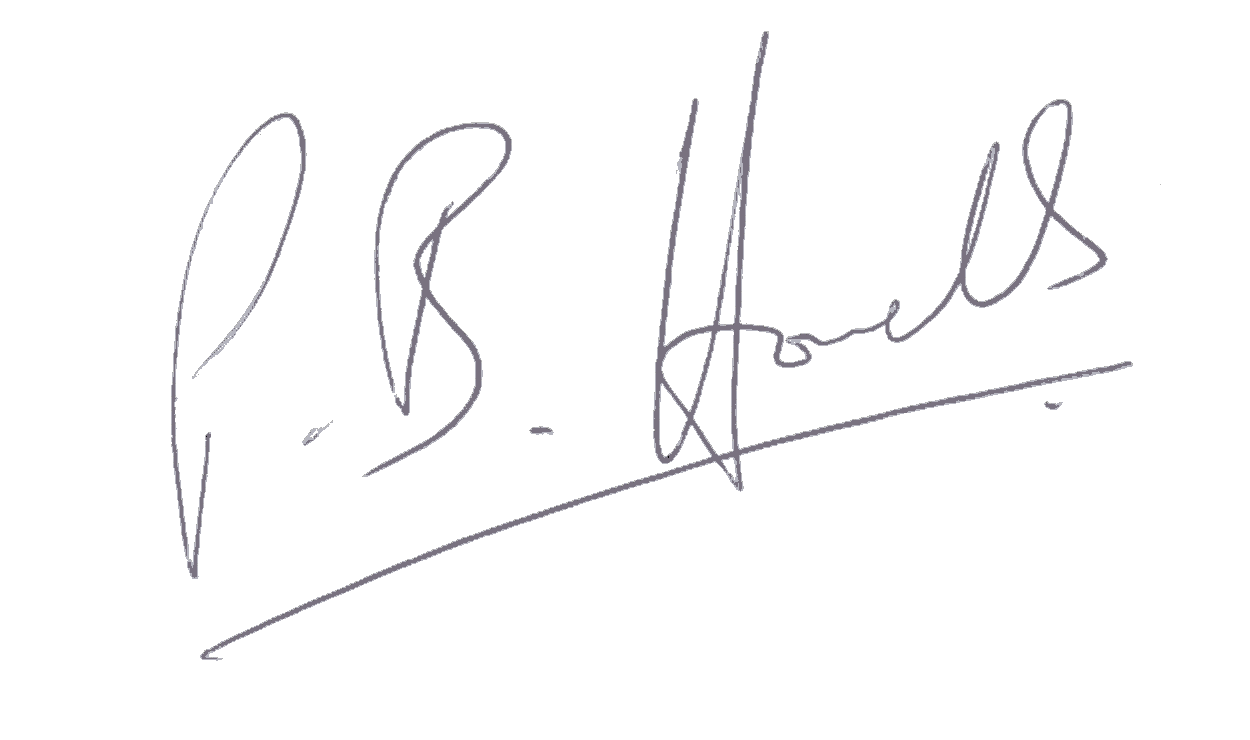 P. B. Howells